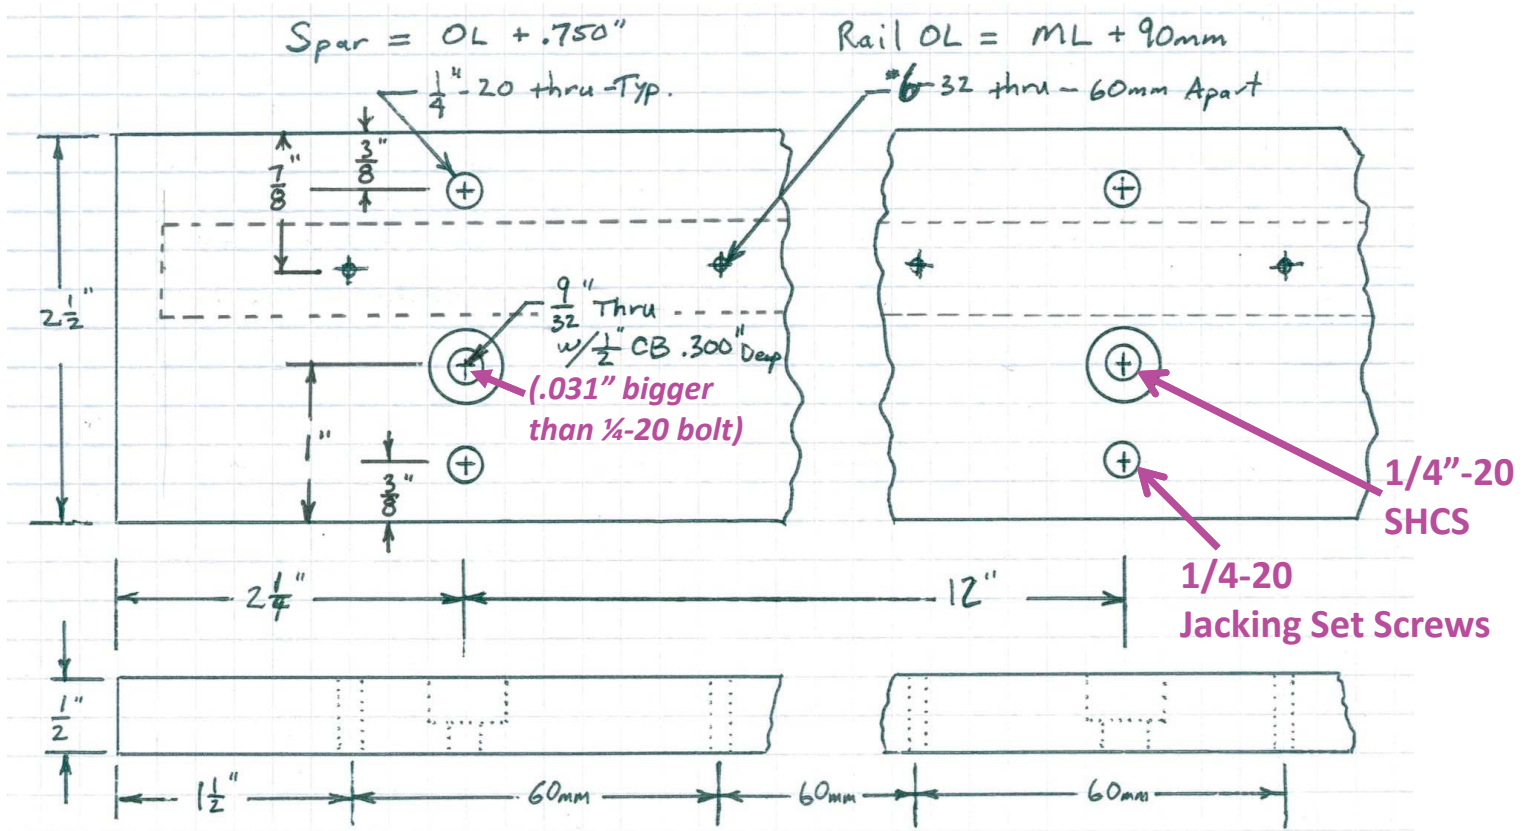 Spar = OL + .750"
Rail OL = ML + 90mm
1/4"-20 thru-Typ.
#6-32 thru - 60mm Apart
7/8"
3/8"
2 1/2"
9/32" Thru
w/ 1/2" CB .300" Deep
(.031” bigger
than ¼-20 bolt)
1"
3/8"
1/4”-20
SHCS
1/4-20
Jacking Set Screws
2 1/4"
12"
1/2"
1 1/2"
60mm
60mm
60mm